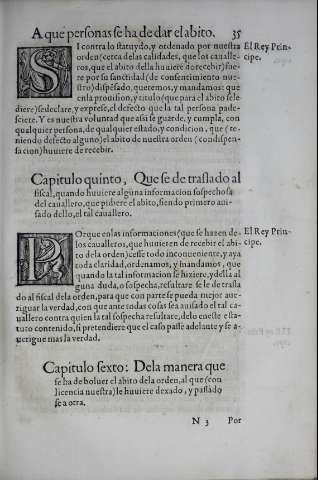 A que personas se ha de dar el abito. 35
SI contra lo statuydo, y ordenado por nuestra
orden (cerca de las calidades, que los cauallє-
ros, que el abito della huuiere de recebir) fue-
re por su sanctidad (de consentimiento nue-
stro) dispẽsado, queremos, y mandamos: que
en la prouision, y titulo (que para el abito se le
diere) se declare, y exprese, el defecto que la tal persona pade-
sciere. Y es nuestra voluntad que asi se guarde, y cumpla, con
qualquier persona, de qualquier estado, y condicion, que (te-
niendo defecto alguno) el abito de nuestra orden (con dispen-
sacion) huuiere de recebir.
El Rey Prin-
cipe.
Capitulo quinto, Que se de traslado al
fiscal, quando huuiere alguna informacion sospechosa
del cauallero, que pidiere el abito, siendo primero aui-
sado dello, el tal cauallero.
POrque en las informaciones (que se hazen de
los caualleros, que huuieren de recebir el abi-
to de la orden) cesse todo inconueniente, y aya
toda claridad, ordenamos, y mandamos, que
quando la tal informacion se hiziere, y della al
guna duda, o sospecha, resultare se le de trasla
do al fiscal dela orden, para que con parte se pueda mejor aue-
riguar la verdad, con que ante todas cosas sea auisado el tal ca-
uallero contra quien la tal sospecha resultare, delo eneste esta-
tuto contenido, si pretendiere que el caso passe adelante y se a-
uerigue mas la verdad.
El Rey Prin-
cipe.
Capitulo sexto: De la manera que
se ha de boluer el abito dela orden, al que (con
licencia nuestra) le huuiere dexado, y passado
se a otra.
N 3 Por